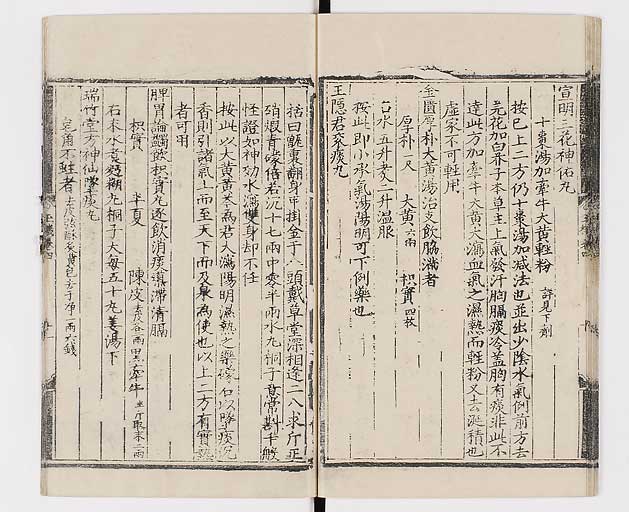 宣明三花神佑丸
十棗湯加牽牛大黃輕粉 詳見下劑
按已上二方仍十棗湯加減法也並出少陰水氣例前方去
芫花加白芥子本草主上氣發汗胸膈痰冷蓋胸有痰非此不
達此方加牽牛大黃大瀉血氣之濕熱而輕粉又去涎積也
虛家不可輕用
金匱厚朴大黃湯治支飲胸滿者
厚朴一尺 大黃六兩 枳實四枚
右水五升煮二升溫服
按此即小承氣湯陽明可下例藥也
王隱君滾痰丸
括曰甑裏翻身甲掛金于今頭戴草堂深相逢二八求斤正
硝煅青礞倍若沉十七兩中零半兩水丸桐子意常斟千般
怪證如神効水瀉雙身却不任
按此以大黃黃芩為君大瀉陽明濕熱之藥礞石以墜痰沉
香則引諸氣上而至天下而及泉為使也以上二方有實熱
者可用
脾胃論蠲飲枳實丸逐飲消痰導滯清膈
枳實 半夏 陳皮去皮各二兩 黑牽牛半斤取末三兩
右末水煮麵糊丸桐子大每五十丸姜湯下
瑞竹堂方神仙墜痰丸
皂角不蛀者